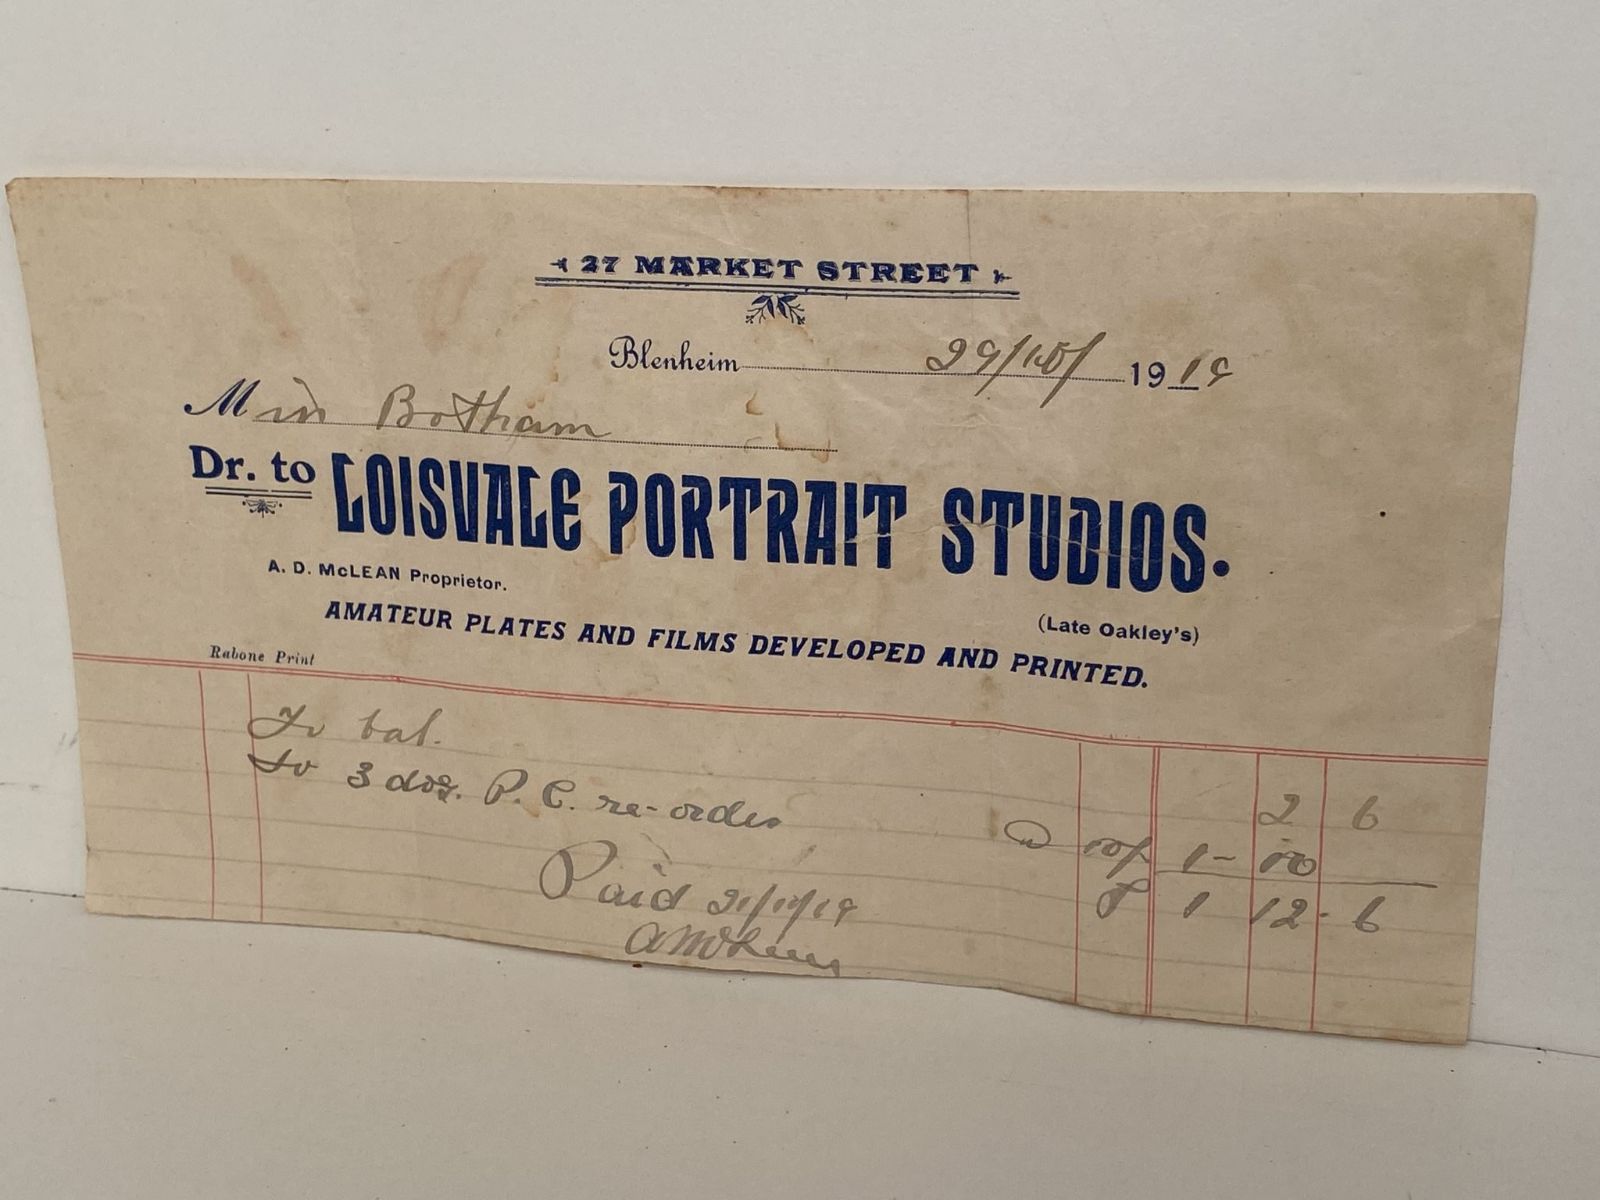 27 MARKET STREET
Blenheim 29/10/ 1919
Miss Botham
Dr. to LOISVALE PORTRAIT STUDIOS.
A. D. McLEAN Proprietor.
(Late Oakley's)
AMATEUR PLATES AND FILMS DEVELOPED AND PRINTED.
Rabone Print
To bal. 2 6
to 3 doz. P. C. re-order @ 10/ 1 - 10
£ 1 12 - 6
Paid 21/11/19